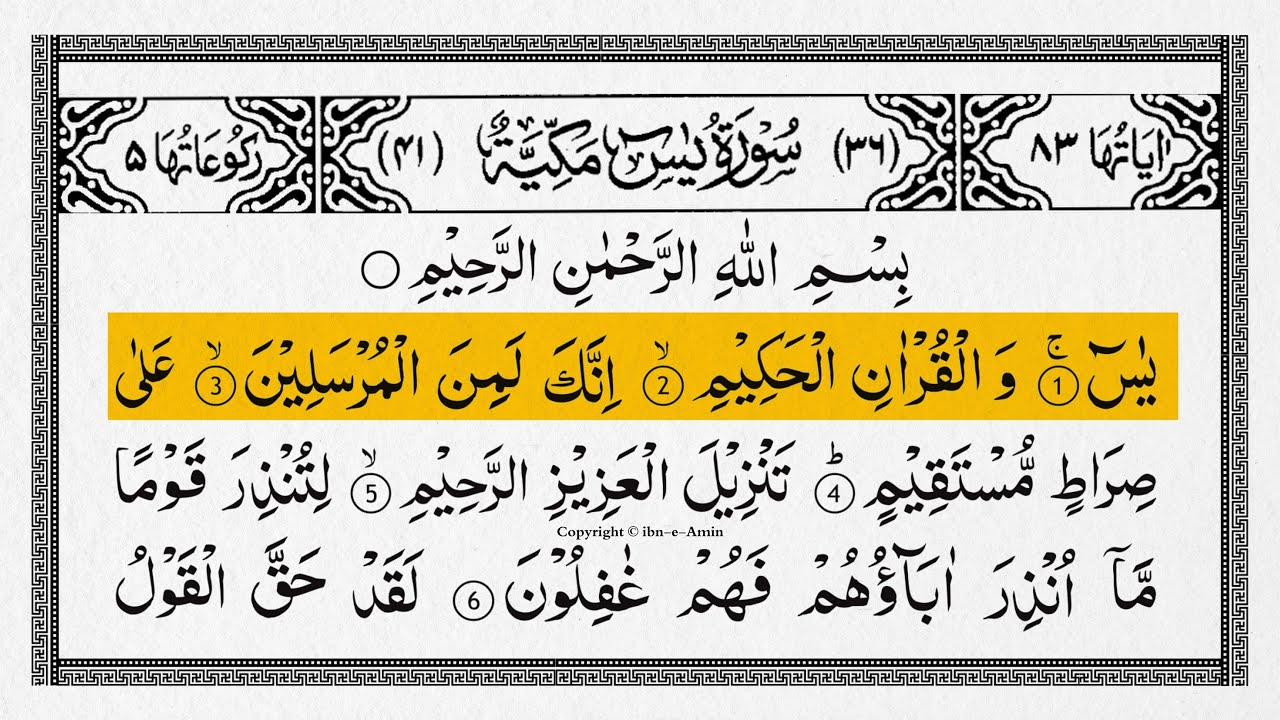 اٰيَاتُهَا ٨٣ (٣٦) سُوْرَةُ يٰسٓ مَكِّيَّةٌ (٤١) رُكُوْعَاتُهَا ٥
بِسْمِ اللّٰهِ الرَّحْمٰنِ الرَّحِيْمِ
يٰسٓ ۚ 1 وَ الْقُرْاٰنِ الْحَكِيْمِ ۙ 2 اِنَّكَ لَمِنَ الْمُرْسَلِيْنَ ۙ 3 عَلٰى
صِرَاطٍ مُّسْتَقِيْمٍ ؕ 4 تَنْزِيْلَ الْعَزِيْزِ الرَّحِيْمِ ۙ 5 لِتُنْذِرَ قَوْمًا
Copyright © ibn-e-Amin
مَّاۤ اُنْذِرَ اٰبَآؤُهُمْ فَهُمْ غٰفِلُوْنَ 6 لَقَدْ حَقَّ الْقَوْلُ